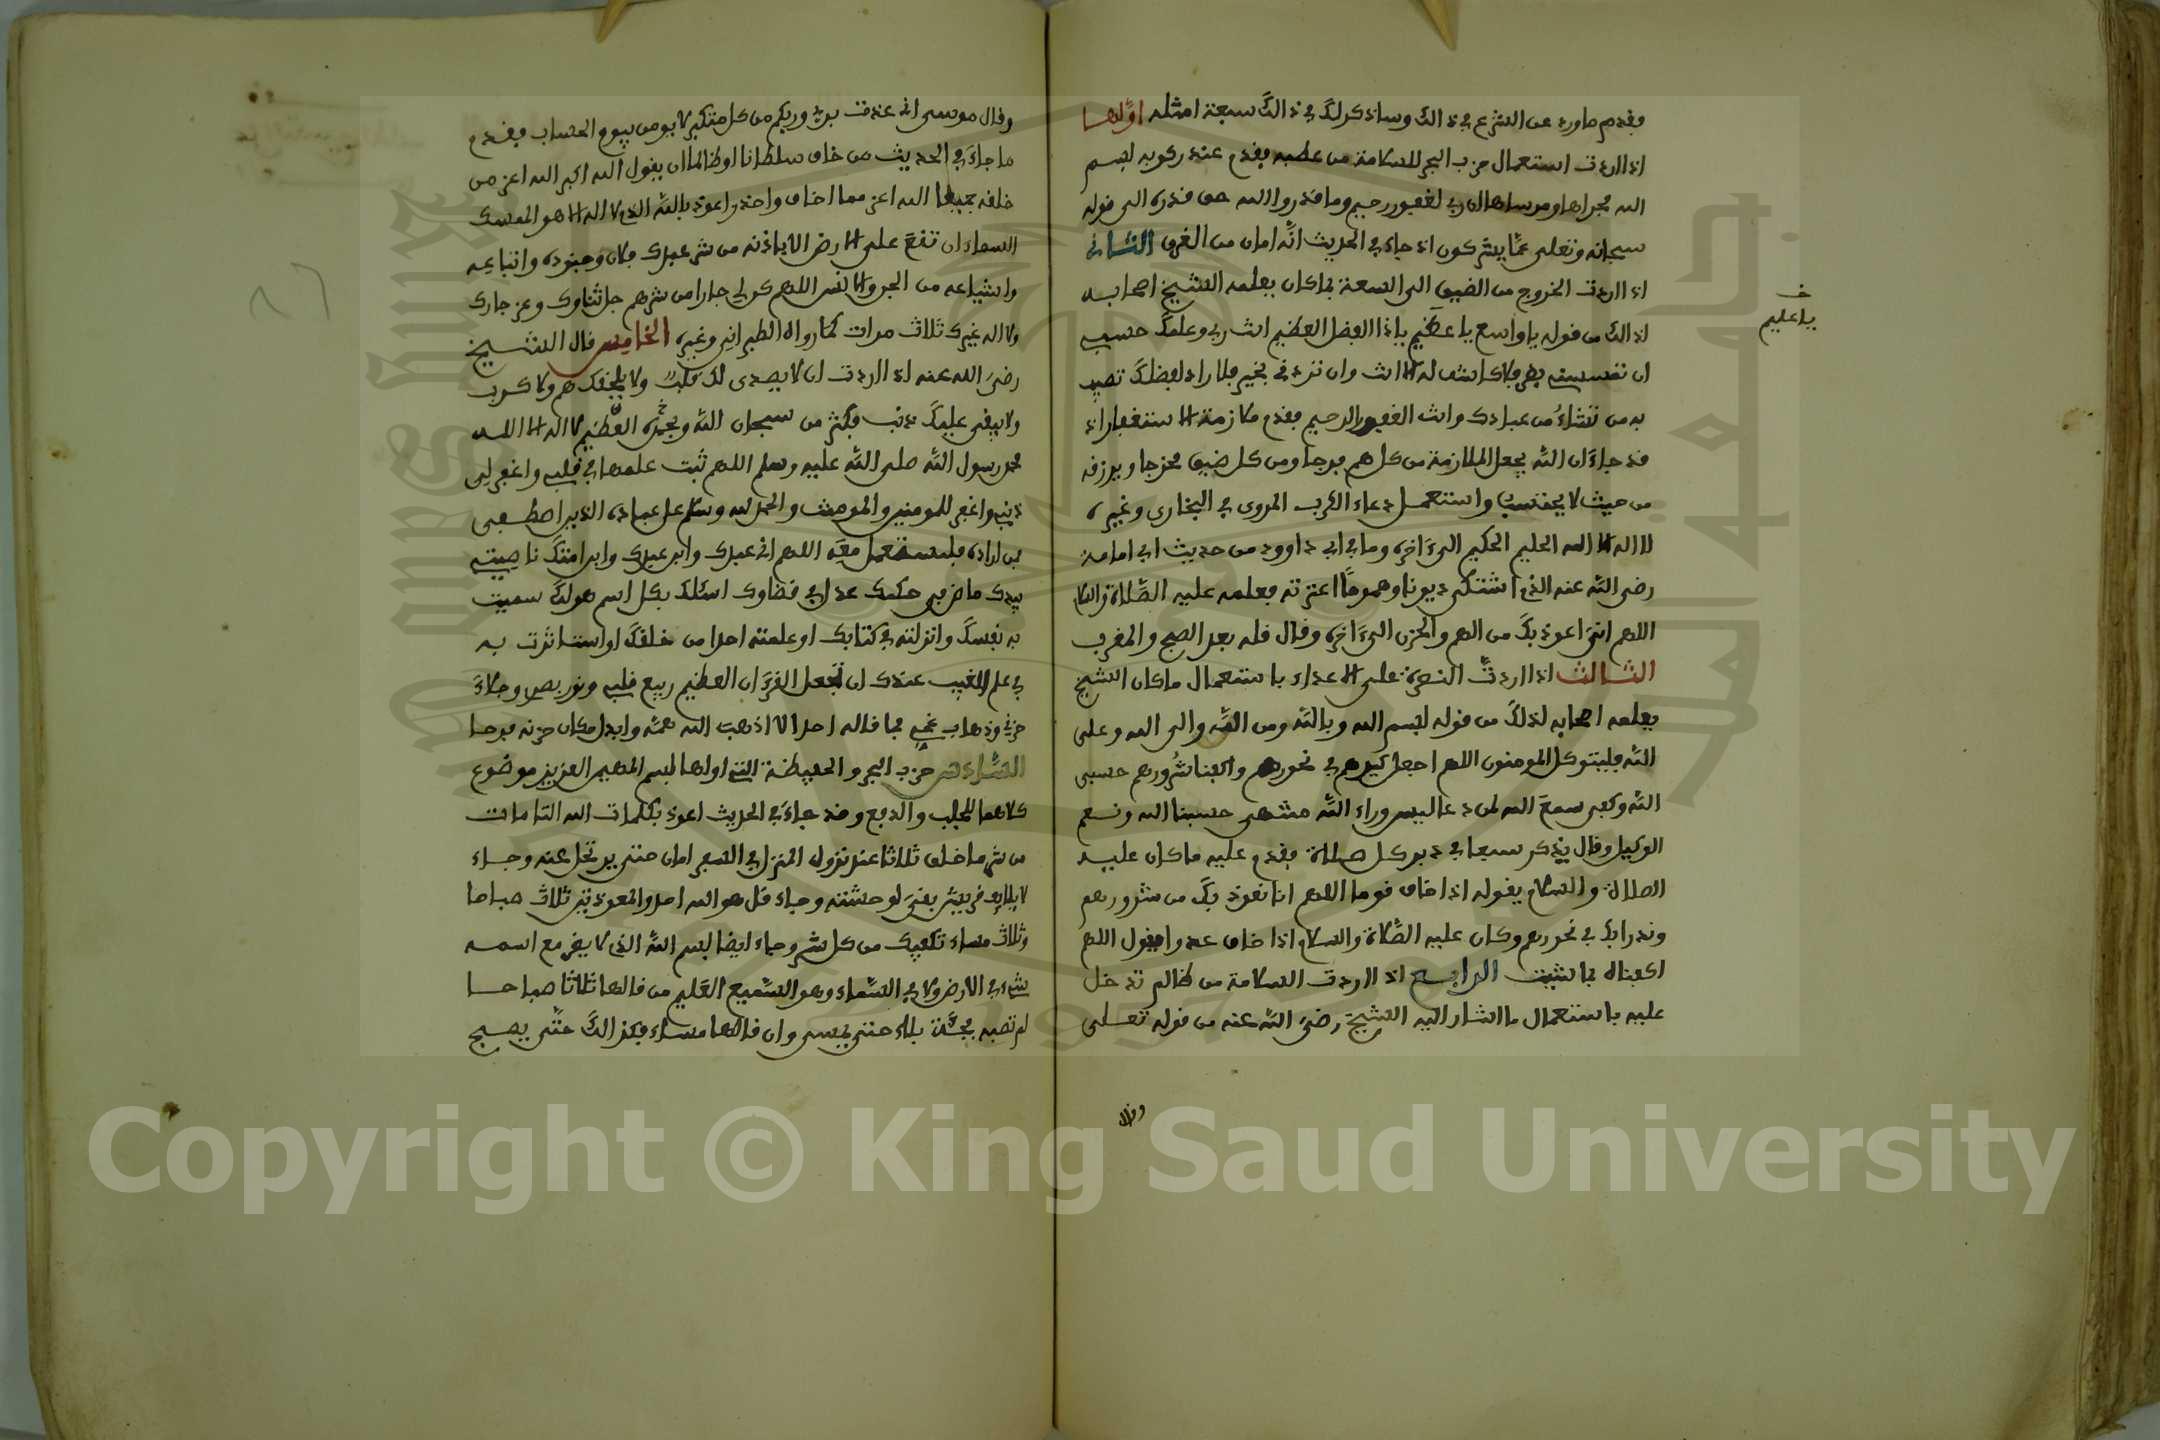 فقدم ما ورد عن الشرع في ذالك وساذكر لك في ذالك سبعة امثله اولها
اذا اردت استعمال حزب البحر للسلامة من عطبه فقدم عند ركوبه بسم
الله مجراها ومرساها ان ربي لغفور رحيم وما قدروا الله حق قدره الى قوله
سبحانه وتعلى عما يشركون اذ جاء في الحديث انه امان من الغرق الثاني
اذا اردت الخروج من الضيق الى السعة بما كان يعلمه الشيخ اصحابه
لذالك من قوله يا واسع يا عظيم ياذا الفضل العظيم انت ربي وعلمك حسبي
ان تمسسني بضر فلا كاشف له الا انت وان تردني بخير فلا راد لفضلك تصيب
به من تشاء من عبادك وانت الغفور الرحيم فقدم ملازمة الاستغفار اذ
قد جاء ان الله يجعل لملازمه من كل هم فرجا ومن كل ضيق مخرجا ويرزقه
من حيث لا يحتسب واستعمل دعاء الكرب المروي في البخاري وغيره
لا اله الا الله الحليم الحكيم الى ءاخره وما في ابي داوود من حديث ابي امامة
رضي الله عنه الذي اشتكى ديونا وهموما اعترته فعلمه عليه الصلاة والسلام
اللهم اني اعوذ بك من الهم والحزن الى ءاخره وقال قله بعد الصبح والمغرب
الثالث اذا اردت النصرة على الاعداء باستعمال ما كان الشيخ
يعلمه اصحابه لذلك من قوله بسم الله وبالله ومن الله والى الله وعلى
الله فليتوكل المومنون اللهم اجعل كيدهم في نحورهم واكفنا شرورهم حسبي
الله وكفى سمع الله لمن دعا ليس وراء الله منتهى حسبنا الله ونعم
الوكيل وقال يذكر سبعا في دبر كل صلاة فقدم عليه ما كان عليه
الصلاة والسلام يقوله اذا خاف قوما اللهم انا نعوذ بك من شرورهم
وندرا بك في نحورهم وكان عليه الصلاة والسلام اذا خاف عدوا يقول اللهم
اكفناه بما شئت الرابع اذا اردت السلامة من ظالم تدخل
عليه باستعمال ما اشار اليه الشيخ رضي الله عنه من قوله تعلى
خ
يا عليم
وقال
وقال موسى اني عذت بربي وربكم من كل متكبر لا يومن بيوم الحساب فقدم
ما جاء في الحديث من خاف سلطانا او ظالما ان يقول الله اكبر الله اعز من
خلقه جميعا الله اعز مما اخاف واحذر اعوذ بالله الذي لا اله الا هو الممسك
السماء ان تقع على الارض الا باذنه من شر عبدك فلان وجنوده واتباعه
واشياعه من الجن والانس اللهم كن لي جارا من شرهم جل ثناوك وعز جارك
ولا اله غيرك ثلاث مرات كما رواه الطبراني وغيره الخامس قال الشيخ
رضي الله عنه اذا اردت ان لا يصدى لك قلب ولا يلحقك هم ولا كرب
ولا يبقى عليك ذنب فكثر من سبحان الله وبحمده العظيم لا اله الا الله
محمد رسول الله صلى الله عليه وسلم اللهم ثبت علمها في قلبي واغفر لي
ذنبي واغفر للمومنين والمومنت والحمد لله وسلام على عباده الذين اصطفى
فمن اراده فليستعمل معه اللهم اني عبدك وابن عبدك وابن امتك ناصيتي
بيدك ماض في حكمك عدل في قضاوك اسئلك بكل اسم هو لك سميت
به نفسك وانزلته في كتابك او علمته احدا من خلقك او استاثرت به
في علم الغيب عندك ان تجعل القرءان العظيم ربيع قلبي ونور بصري وجلاء
حزني وذهاب غمي فما قاله احد الا اذهب الله همه وابدل مكان حزنه فرحا
السادس حزب البحر والحفيظة التي اولها بسم المهيمن العزيز موضوع
كلاهما للجلب والدفع وقد جاء في الحديث اعوذ بكلمات الله التامات
من شر ما خلق ثلاثا عند نزوله المنزل في السفر امان حتى يرتحل عنه وجاء
لايلاف قريش وجاء قل هو الله احد والمعوذتين ثلاث صباحا
وثلاث مساء تكفيك من كل شر وجاء ايضا بسم الله الذي لا يضر مع اسمه
شيء في الارض ولا في السماء وهو السميع العليم من قالها ثلاثا صباحا
لم تصبه فجئة بلاء حتى يمسي وان قالها مساء فكذالك حتى يصبح
Copyright © King Saud University